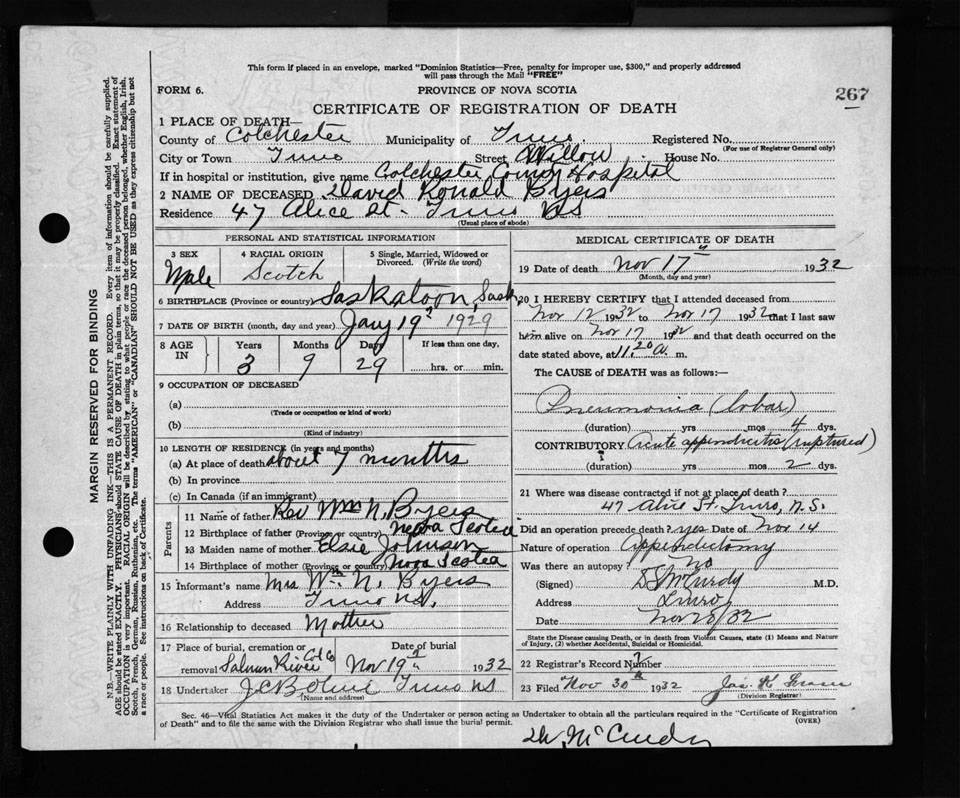 This form if placed in an envelope, marked "Dominion Statistics—Free, penalty for improper use, $300," and properly addressed
will pass through the Mail "FREE"
FORM 6.
PROVINCE OF NOVA SCOTIA
267
CERTIFICATE OF REGISTRATION OF DEATH
1 PLACE OF DEATH—
County of Colchester Municipality of Truro Registered No.
(For use of Registrar General only)
City or Town Truro Street Willow House No.
If in hospital or institution, give name Colchester County Hospital
2 NAME OF DECEASED David Ronald Byers
Residence 47 Alice St. Truro NS
(Usual place of abode)
PERSONAL AND STATISTICAL INFORMATION
3 SEX Male
4 RACIAL ORIGIN Scotch
5 Single, Married, Widowed or Divorced. (Write the word)
6 BIRTHPLACE (Province or country) Saskatoon, Sask.
7 DATE OF BIRTH (month, day and year) Jany 19 1929
8 AGE IN
Years Months Days If less than one day,
3 9 29 hrs. or min.
9 OCCUPATION OF DECEASED
(a)
(Trade or occupation or kind of work)
(b)
(Kind of industry)
10 LENGTH OF RESIDENCE (in years and months)
(a) At place of death about 7 months
(b) In province
(c) In Canada (if an immigrant)
Parents
11 Name of father Rev Wm N. Byers
12 Birthplace of father (Province or country) Nova Scotia
13 Maiden name of mother Elsie Johnson
14 Birthplace of mother (Province or country) Nova Scotia
15 Informant's name Mrs Wm. N. Byers
Address Truro NS.
16 Relationship to deceased Mother
17 Place of burial, cremation or Date of burial
removal Salmon River Col Co Nov 19 1932
18 Undertaker Truro NS
(Name and address)
MEDICAL CERTIFICATE OF DEATH
19 Date of death Nov 17 1932
(Month, day and year)
20 I HEREBY CERTIFY that I attended deceased from
Nov 12 1932 to Nov 17 1932 that I last saw
him alive on Nov 17 1932 and that death occurred on the
date stated above, at 11.20 a. m.
The CAUSE of DEATH was as follows:—
Pneumonia (lobar)
(duration) yrs mos 4 dys.
CONTRIBUTORY Acute appendicitis (ruptured)
(duration) yrs mos 2 dys.
21 Where was disease contracted if not at place of death?
47 Alice St. Truro, N.S.
Did an operation precede death? yes Date of Nov 14
Nature of operation Appendectomy
Was there an autopsy? No
(Signed) McCurdy M.D.
Address Truro
Date Nov 28/32
State the Disease causing Death, or in death from Violent Causes, state (1) Means and Nature
of Injury, (2) whether Accidental, Suicidal or Homicidal.
22 Registrar's Record Number
23 Filed Nov 30th 1932 Jas.
(Division Registrar)
Sec. 46—Vital Statistics Act makes it the duty of the Undertaker or person acting as Undertaker to obtain all the particulars required in the "Certificate of Registration
of Death" and to file the same with the Division Registrar who shall issue the burial permit.
(OVER)
McCurdy
MARGIN RESERVED FOR BINDING
N.B.—WRITE PLAINLY WITH UNFADING INK—THIS IS A PERMANENT RECORD. Every item of information should be carefully supplied.
AGE should be stated EXACTLY. PHYSICIANS should STATE CAUSE OF DEATH in plain terms, so that it may be properly classified. Exact statement of
OCCUPATION is very important. RACIAL ORIGIN will be described by stating to what people or race the deceased person belonged, whether English, Irish,
Scotch, French, German, Russian, Ruthenian, etc. The terms "AMERICAN" or "CANADIAN" SHOULD NOT BE USED as they express citizenship but not
a race or people. See instructions on back of Certificate.